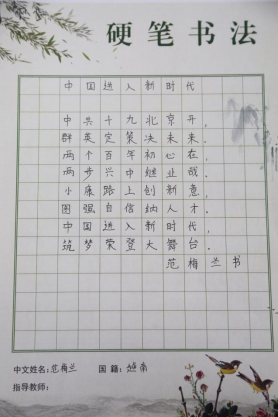 硬笔书法
中国进入新时代
中共十九北京开，
群英定策决未来。
两个百年初心在，
两步兴中继业哉。
小康路上创新意，
图强自信纳人才。
中国进入新时代，
筑梦荣登大舞台。
范梅兰书
中文姓名：范梅兰 国籍：越南
指导教师：